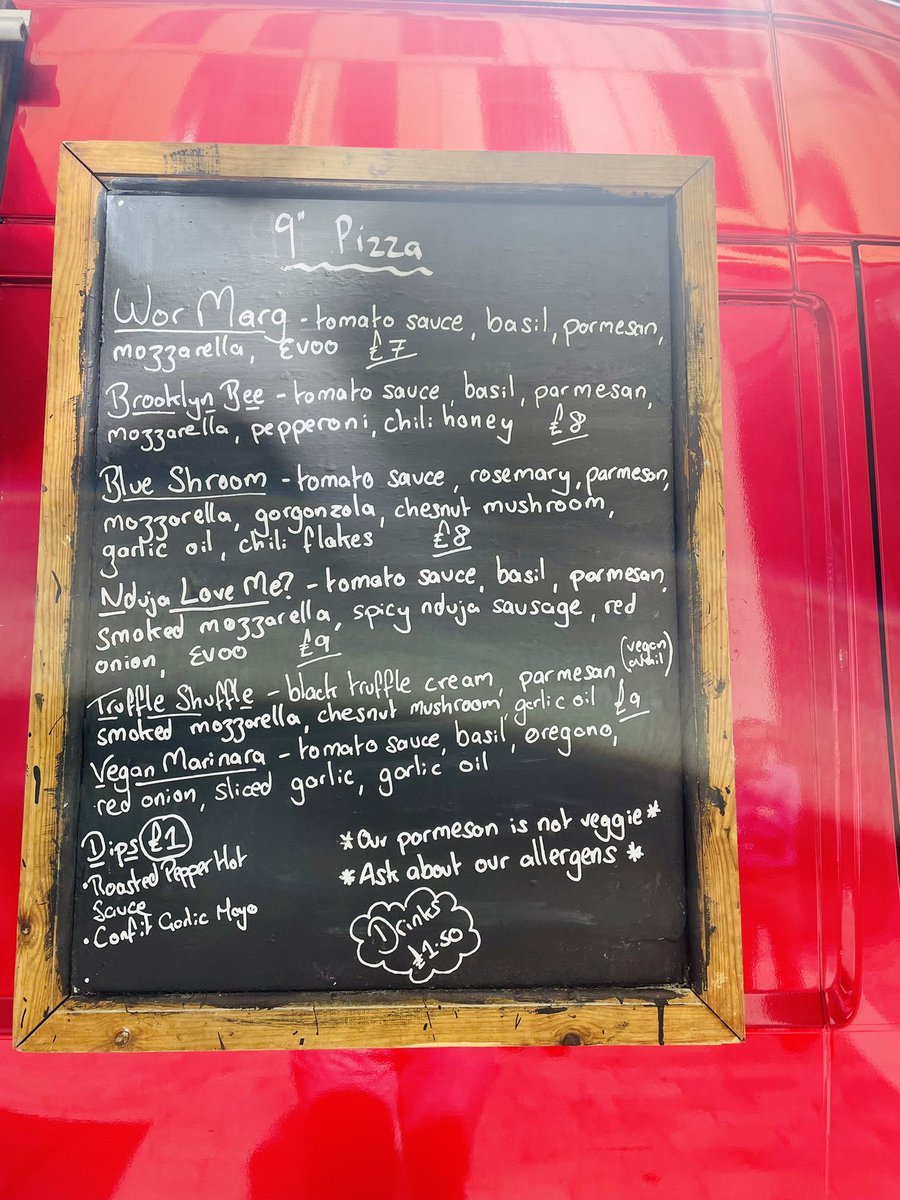 9" Pizza
Wor Marg - tomato sauce, basil, parmesan,
mozzarella, EVOO £7
Brooklyn Bee - tomato sauce, basil, parmesan,
mozzarella, pepperoni, chili honey £8
Blue Shroom - tomato sauce, rosemary, parmesan,
mozzarella, gorgonzola, chesnut mushroom,
garlic oil, chili flakes £8
Nduja Love Me? - tomato sauce, basil, parmesan,
smoked mozzarella, spicy nduja sausage, red
onion, EVOO £9
Truffle Shuffle - black truffle cream, parmesan (vegan avail)
smoked mozzarella, chesnut mushroom, garlic oil £9
Vegan Marinara - tomato sauce, basil, oregano,
red onion, sliced garlic, garlic oil
Dips £1
• Roasted Pepper Hot
Sauce
• Confit Garlic Mayo
*Our parmesan is not veggie*
*Ask about our allergens*
Drinks
£1.50